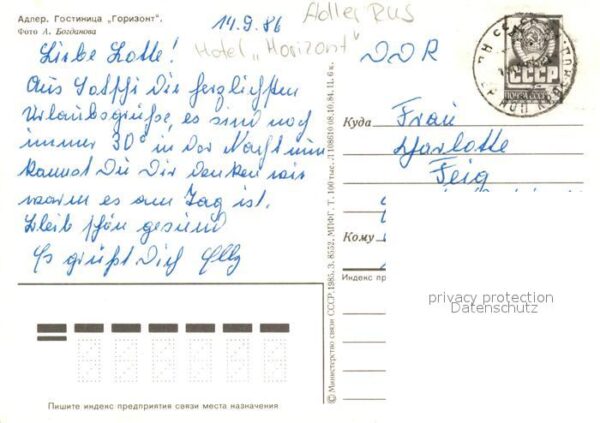 Адлер. Гостиница „Горизонт".
Фото А. Богданова
14.9.86
Adler RUS
Hotel „Horizont"
Liebe Lotte!
Aus Sotschi Die herzlichsten
Urlaubsgrüße, es sind noch
immer 30° in der Nacht nun
kannst Du Dir denken wie
warm es am Tag ist.
Bleib schön gesund
Es grüßt Dich Elly
DDR
СССР
Куда Frau
Charlotte
Feig
Кому
Индекс пр
privacy protection
Datenschutz
© Министерство связи СССР. 1985. З. 8552. МПФГ. Т. 100 тыс. Л 108610 08.10.84. 11. 6 к.
Пишите индекс предприятия связи места назначения